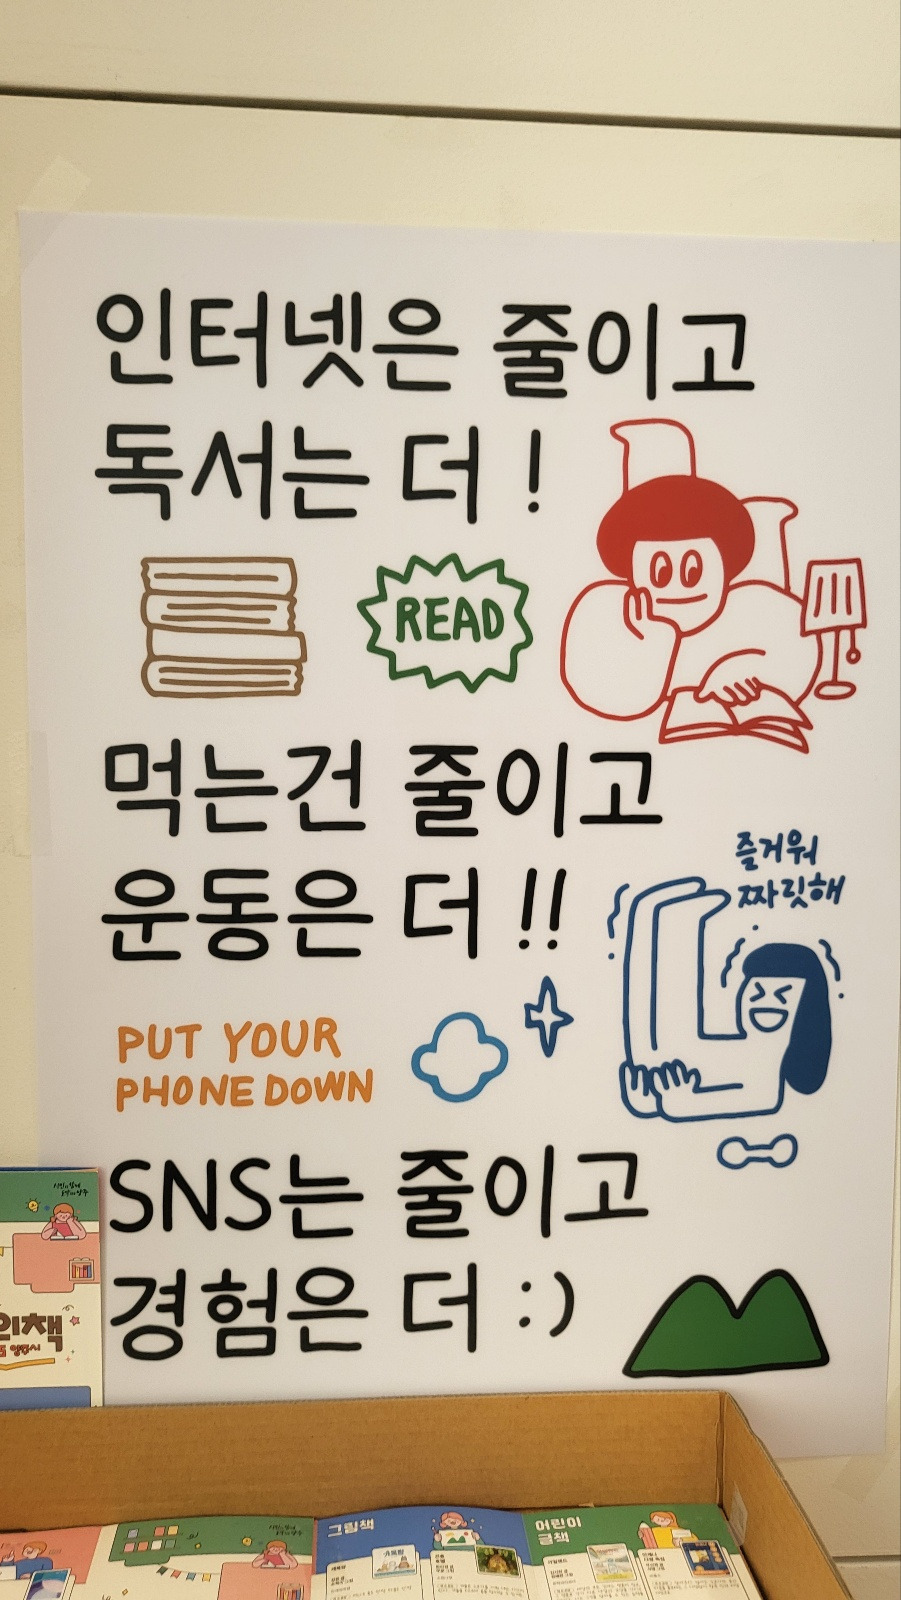 인터넷은 줄이고
독서는 더 !
READ
먹는건 줄이고
운동은 더 !!
즐거워
짜릿해
PUT YOUR
PHONE DOWN
SNS는 줄이고
경험은 더 :)
의책
양주시
그림책
어린이
글책